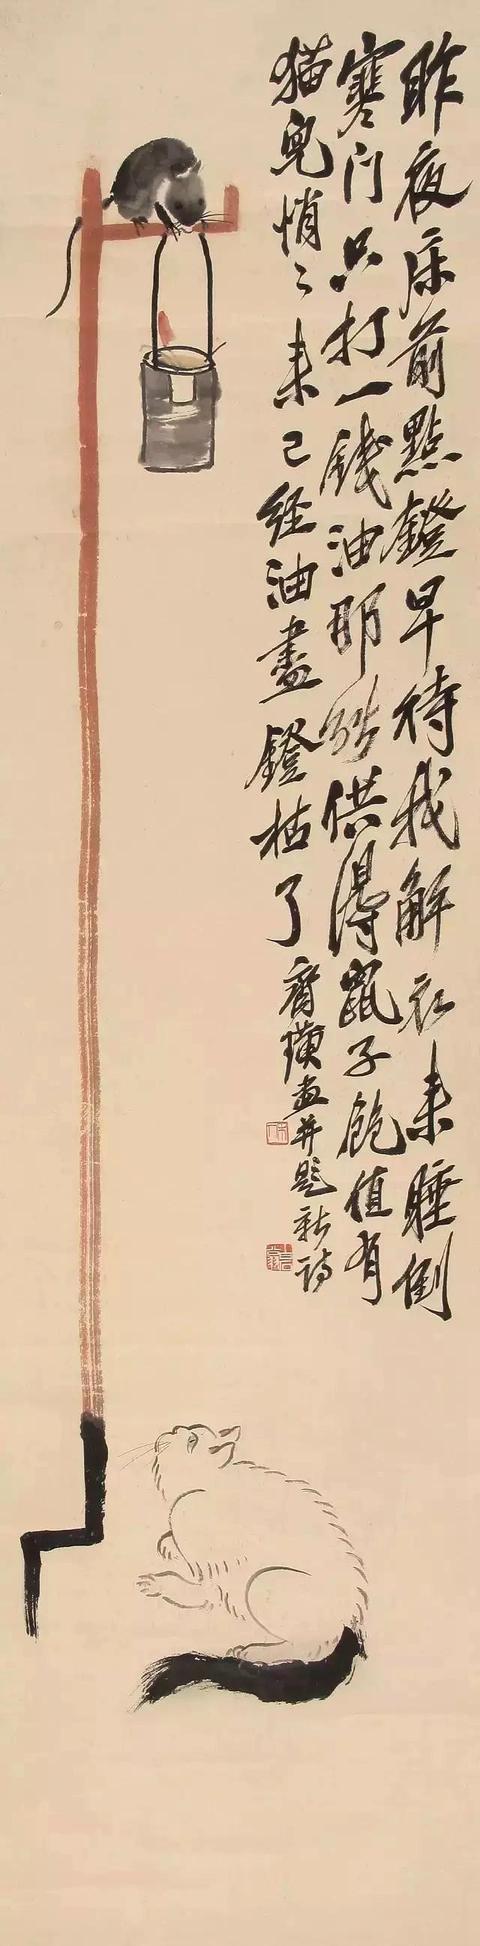 昨夜床前點鐙早待我解衣来睡倒
寒门只打一錢油那能供得鼠子飽值有
猫兒悄〻来已経油盡鐙枯了
齊璜畫并題新詩